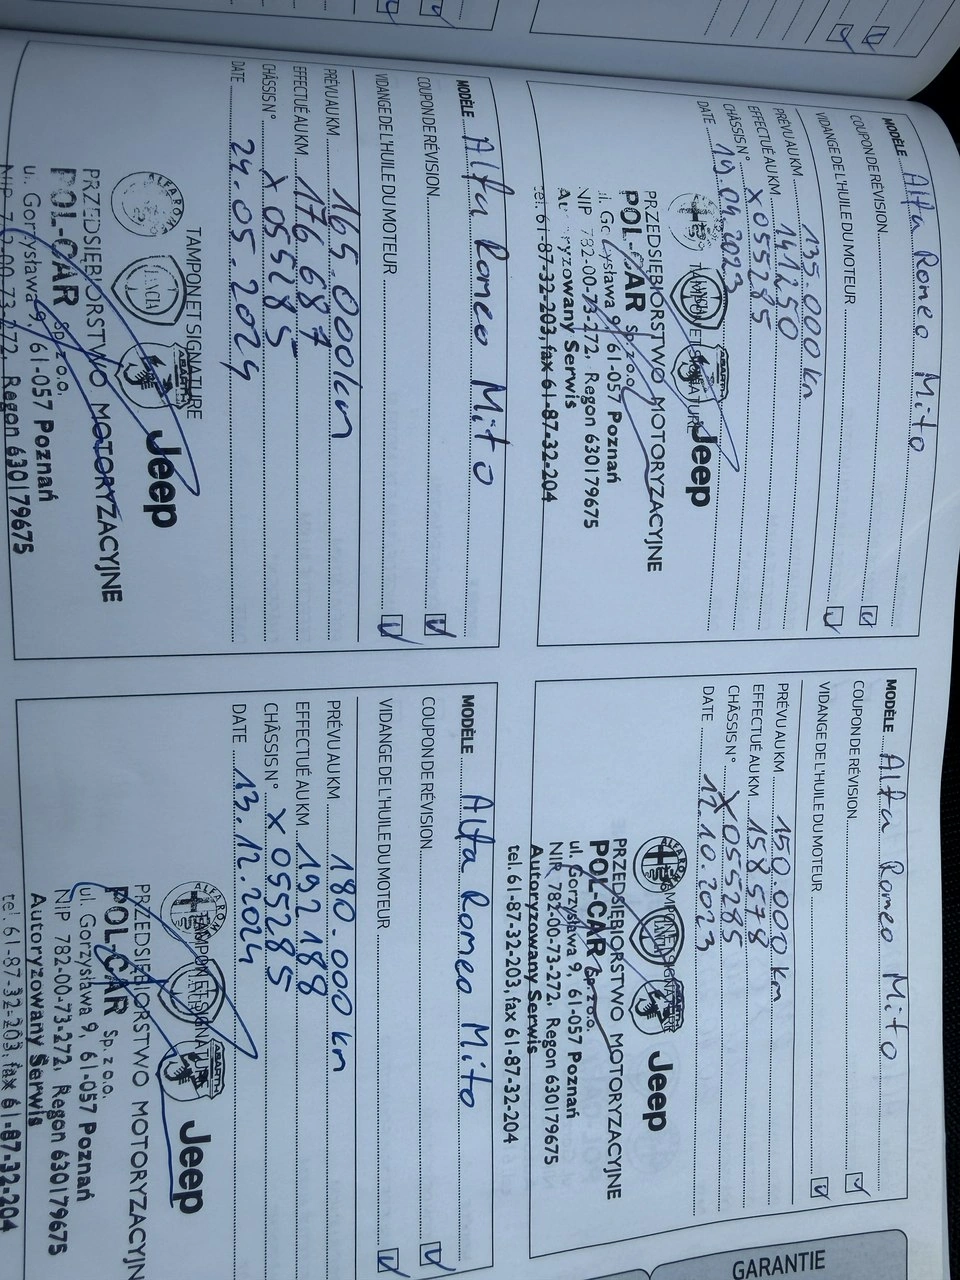 MODÈLE Alfa Romeo Mito
COUPON DE RÉVISION
VIDANGE DE L'HUILE DU MOTEUR
PRÉVU AU KM 135.000 km
EFFECTUÉ AU KM 141250
CHÂSSIS N° X055285
DATE 19.04.2023
TAMPON ET SIGNATURE
Jeep
PRZEDSIĘBIORSTWO MOTORYZACYJNE
POL-CAR Sp. z o.o.
ul. Gorzysława 9, 61-057 Poznań
NIP 782-00-73-272, Regon 630179675
Autoryzowany Serwis
tel. 61-87-32-203, fax 61-87-32-204
MODÈLE Alfa Romeo Mito
COUPON DE RÉVISION
VIDANGE DE L'HUILE DU MOTEUR
PRÉVU AU KM 150.000 km
EFFECTUÉ AU KM 158578
CHÂSSIS N° X055285
DATE 12.10.2023
TAMPON ET SIGNATURE
Jeep
PRZEDSIĘBIORSTWO MOTORYZACYJNE
POL-CAR Sp. z o.o.
ul. Gorzysława 9, 61-057 Poznań
NIP 782-00-73-272, Regon 630179675
Autoryzowany Serwis
tel. 61-87-32-203, fax 61-87-32-204
MODÈLE Alfa Romeo Mito
COUPON DE RÉVISION
VIDANGE DE L'HUILE DU MOTEUR
PRÉVU AU KM 165.000km
EFFECTUÉ AU KM 176687
CHÂSSIS N° X055285
DATE 24.05.2024
TAMPON ET SIGNATURE
ALFA ROM LANCIA ABARTH Jeep
PRZEDSIĘBIORSTWO MOTORYZACYJNE
POL-CAR Sp. z o.o.
ul. Gorzysława 9, 61-057 Poznań
NIP 782-00-73-272, Regon 630179675
MODÈLE Alfa Romeo Mito
COUPON DE RÉVISION
VIDANGE DE L'HUILE DU MOTEUR
PRÉVU AU KM 180.000 km
EFFECTUÉ AU KM 192188
CHÂSSIS N° X055285
DATE 13.12.2024
TAMPON ET SIGNATURE
ALFA ROM ABARTH Jeep
PRZEDSIĘBIORSTWO MOTORYZACYJN
POL-CAR Sp. z o.o.
ul. Gorzysława 9, 61-057 Poznań
NIP 782-00-73-272, Regon 630179675
Autoryzowany Serwis
tel. 61-87-32-203, fax 61-87-32-204
GARANTIE